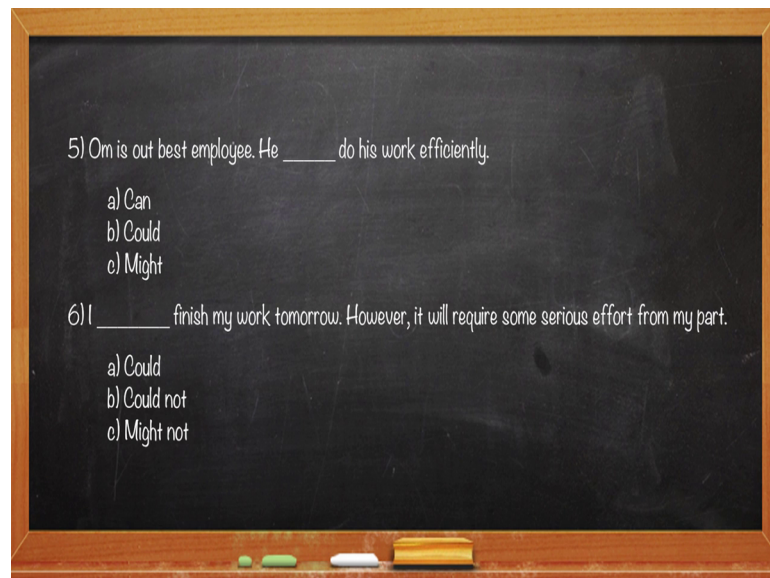 5) Om is out best employee. He _____ do his work efficiently.
a) Can
b) Could
c) Might
6) I _______ finish my work tomorrow. However, it will require some serious effort from my part.
a) Could
b) Could not
c) Might not